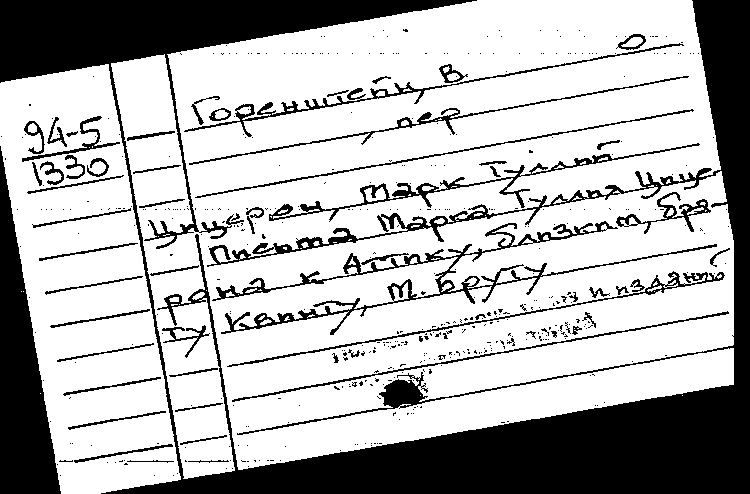 94-5
1330
Горенштейн, В
, пер
Цицерон, Марк Туллий
Письма Марка Туллия Цице-
рона к Аттику, близким, бра-
ту Квинту, М. Бруту
и изданий